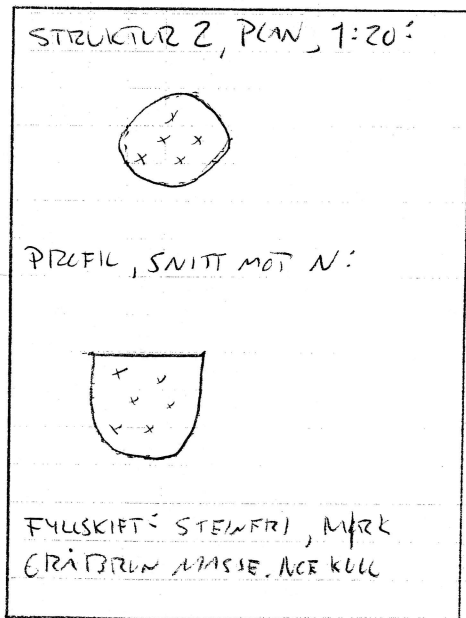 STRUKTUR 2, PLAN, 1:20:
PROFIL, SNITT MOT N:
FYLLSKIFT: STEINFRI, MØRK
GRÅBRUN MASSE. NOE KULL